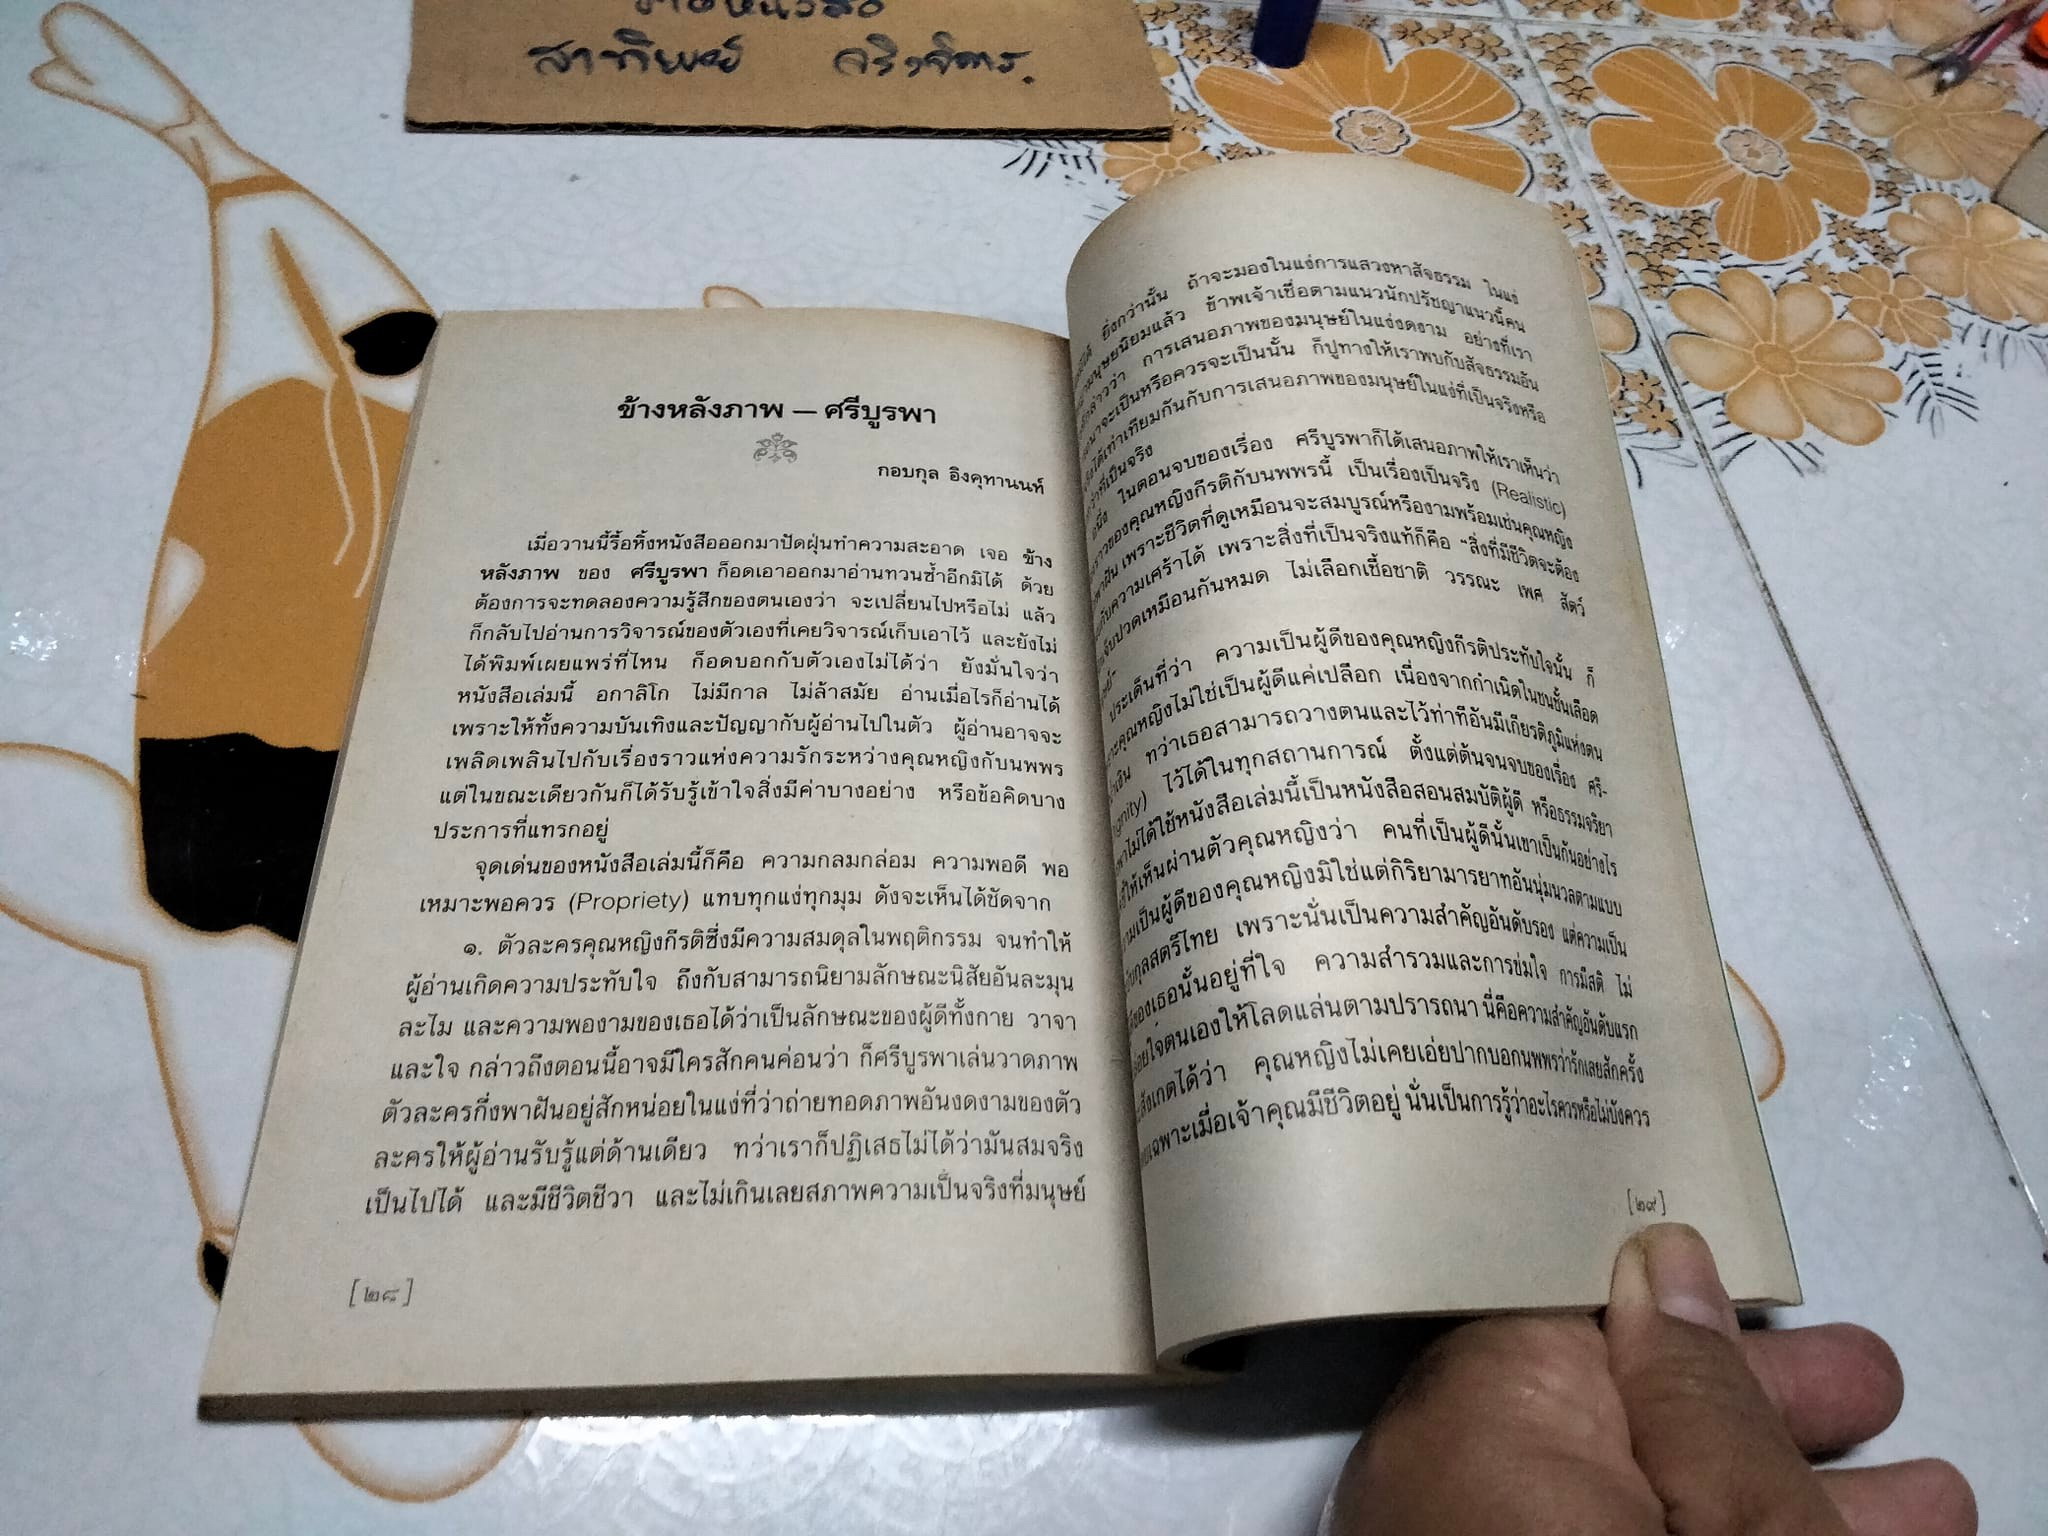 ขายหนังสือ
สาทิพย์ จริงจิตร.
ข้างหลังภาพ – ศรีบูรพา
กอบกุล อิงคุทานนท์
เมื่อวานนี้รื้อหิ้งหนังสือออกมาปัดฝุ่นทำความสะอาด เจอ ข้าง
หลังภาพ ของ ศรีบูรพา ก็อดเอาออกมาอ่านทวนซ้ำอีกมิได้ ด้วย
ต้องการจะทดลองความรู้สึกของตนเองว่า จะเปลี่ยนไปหรือไม่ แล้ว
ก็กลับไปอ่านการวิจารณ์ของตัวเองที่เคยวิจารณ์เก็บเอาไว้ และยังไม่
ได้พิมพ์เผยแพร่ที่ไหน ก็อดบอกกับตัวเองไม่ได้ว่า ยังมั่นใจว่า
หนังสือเล่มนี้ อกาลิโก ไม่มีกาล ไม่ล้าสมัย อ่านเมื่อไรก็อ่านได้
เพราะให้ทั้งความบันเทิงและปัญญากับผู้อ่านไปในตัว ผู้อ่านอาจจะ
เพลิดเพลินไปกับเรื่องราวแห่งความรักระหว่างคุณหญิงกับนพพร
แต่ในขณะเดียวกันก็ได้รับรู้เข้าใจสิ่งมีค่าบางอย่าง หรือข้อคิดบาง
ประการที่แทรกอยู่
จุดเด่นของหนังสือเล่มนี้ก็คือ ความกลมกล่อม ความพอดี พอ
เหมาะพอควร (Propriety) แทบทุกแง่ทุกมุม ดังจะเห็นได้ชัดจาก
๑. ตัวละครคุณหญิงกีรติซึ่งมีความสมดุลในพฤติกรรม จนทำให้
ผู้อ่านเกิดความประทับใจ ถึงกับสามารถนิยามลักษณะนิสัยอันละมุน
ละไม และความพองามของเธอได้ว่าเป็นลักษณะของผู้ดีทั้งกาย วาจา
และใจ กล่าวถึงตอนนี้อาจมีใครสักคนค่อนว่า ก็ศรีบูรพาเล่นวาดภาพ
ตัวละครกึ่งพาฝันอยู่สักหน่อยในแง่ที่ว่าถ่ายทอดภาพอันงดงามของตัว
ละครให้ผู้อ่านรับรู้แต่ด้านเดียว ทว่าเราก็ปฏิเสธไม่ได้ว่ามันสมจริง
เป็นไปได้ และมีชีวิตชีวา และไม่เกินเลยสภาพความเป็นจริงที่มนุษย์
[๒๘]
ยิ่งกว่านั้น ถ้าจะมองในแง่การแสวงหาสัจธรรม ในแง่
มนุษยนิยมแล้ว ข้าพเจ้าเชื่อตามแนวนักปรัชญาแนวนี้คน
กล่าวว่า การเสนอภาพของมนุษย์ในแง่งดงาม อย่างที่เรา
จะเป็นหรือควรจะเป็นนั้น ก็ปูทางให้เราพบกับสัจธรรมอัน
ได้เท่าเทียมกันกับการเสนอภาพของมนุษย์ในแง่ที่เป็นจริงหรือ
ที่เป็นจริง
อนึ่ง ในตอนจบของเรื่อง ศรีบูรพาก็ได้เสนอภาพให้เราเห็นว่า
ของคุณหญิงกีรติกับนพพรนี้ เป็นเรื่องเป็นจริง (Realistic)
เพราะชีวิตที่ดูเหมือนจะสมบูรณ์หรืองามพร้อมเช่นคุณหญิง
ความเศร้าได้ เพราะสิ่งที่เป็นจริงแท้ก็คือ “สิ่งที่มีชีวิตจะต้อง
เจ็บปวดเหมือนกันหมด ไม่เลือกเชื้อชาติ วรรณะ เพศ สัตว์
ประเด็นที่ว่า ความเป็นผู้ดีของคุณหญิงกีรติประทับใจนั้น ก็
คุณหญิงไม่ใช่เป็นผู้ดีแค่เปลือก เนื่องจากกำเนิดในชนชั้นเลือด
ทว่าเธอสามารถวางตนและไว้ท่าทีอันมีเกียรติภูมิแห่งตน
ไว้ได้ในทุกสถานการณ์ ตั้งแต่ต้นจนจบของเรื่อง ศรี-
ไม่ได้ใช้หนังสือเล่มนี้เป็นหนังสือสอนสมบัติผู้ดี หรือธรรมจริยา
ให้เห็นผ่านตัวคุณหญิงว่า คนที่เป็นผู้ดีนั้นเขาเป็นกันอย่างไร
เป็นผู้ดีของคุณหญิงมิใช่แต่กิริยามารยาทอันนุ่มนวลตามแบบ
กุลสตรีไทย เพราะนั่นเป็นความสำคัญอันดับรอง แต่ความเป็น
ของเธอนั้นอยู่ที่ใจ ความสำรวมและการข่มใจ การมีสติ ไม่
ใจตนเองให้โลดแล่นตามปรารถนา นี่คือความสำคัญอันดับแรก
สังเกตได้ว่า คุณหญิงไม่เคยเอ่ยปากบอกนพพรว่ารักเลยสักครั้ง
เฉพาะเมื่อเจ้าคุณมีชีวิตอยู่ นั่นเป็นการรู้ว่าอะไรควรหรือไม่บังควร
[๒๙]